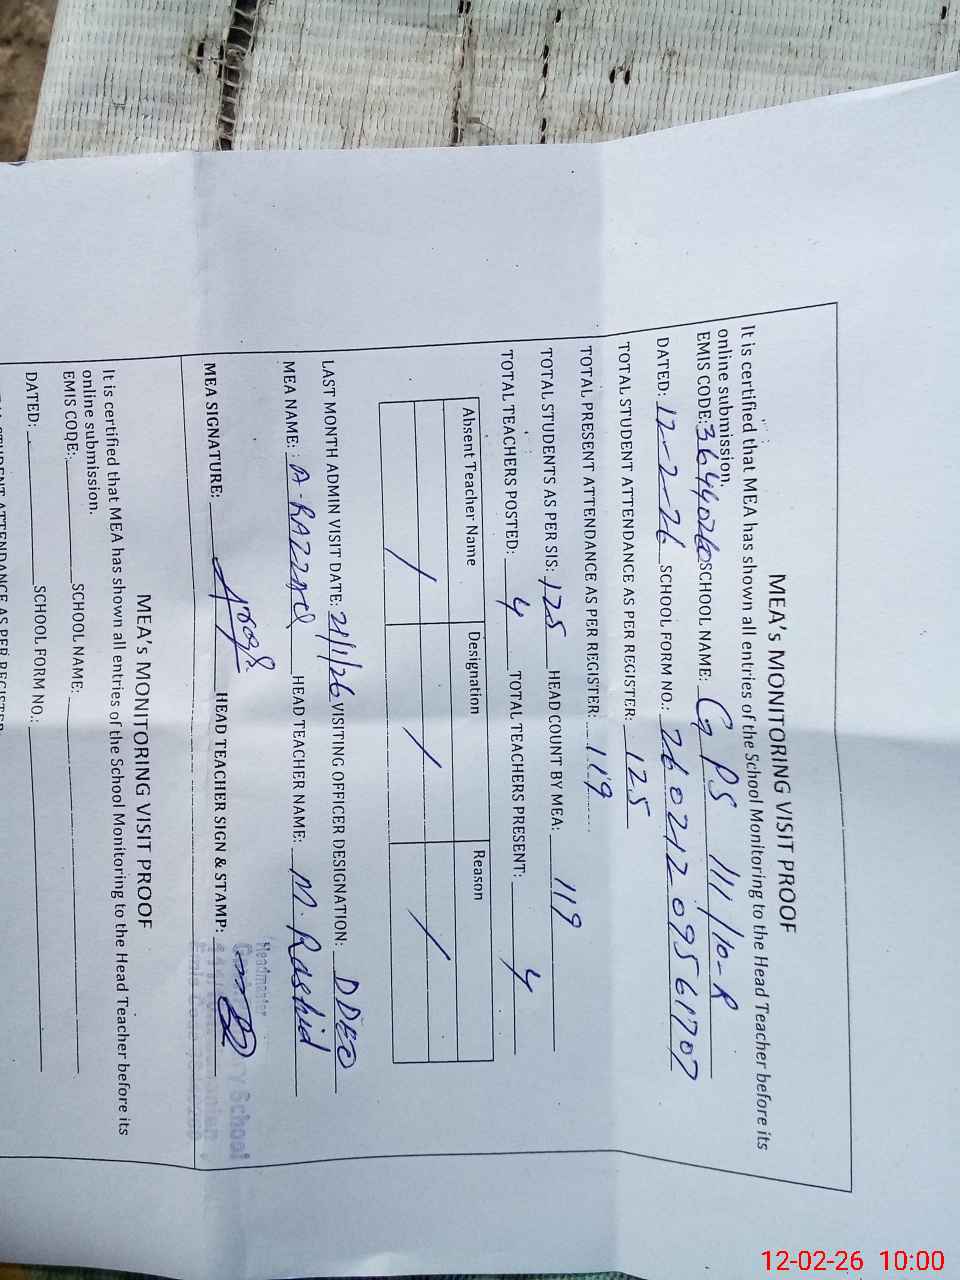 MEA's MONITORING VISIT PROOF
It is certified that MEA has shown all entries of the School Monitoring to the Head Teacher before its
online submission.
EMIS CODE: 36440260 SCHOOL NAME: GPS 111/10-R
DATED: 12-2-26 SCHOOL FORM NO.: 26021209561707
TOTAL STUDENT ATTENDANCE AS PER REGISTER: 125
TOTAL PRESENT ATTENDANCE AS PER REGISTER: 119
TOTAL STUDENTS AS PER SIS: 125 HEAD COUNT BY MEA: 119
TOTAL TEACHERS POSTED: 4 TOTAL TEACHERS PRESENT: 4
Absent Teacher Name Designation Reason
/ / /
LAST MONTH ADMIN VISIT DATE: 21/1/26 VISITING OFFICER DESIGNATION: DDEO
MEA NAME: A. RAZZAQ HEAD TEACHER NAME: M. Rashid
MEA SIGNATURE: HEAD TEACHER SIGN & STAMP:
Headmaster
School
MEA's MONITORING VISIT PROOF
It is certified that MEA has shown all entries of the School Monitoring to the Head Teacher before its
online submission.
EMIS CODE: SCHOOL NAME:
DATED: SCHOOL FORM NO.:
STUDENT ATTENDANCE AS PER REGISTER
12-02-26 10:00